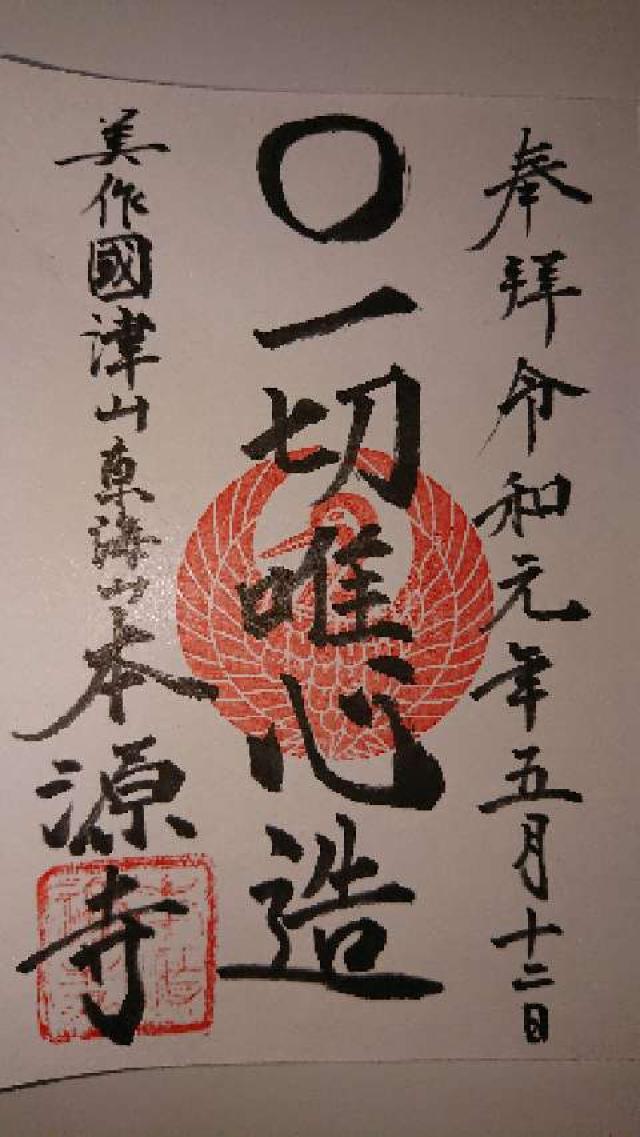 奉拝令和元年五月十二日
〇一切唯心造
美作國津山東海山本源寺